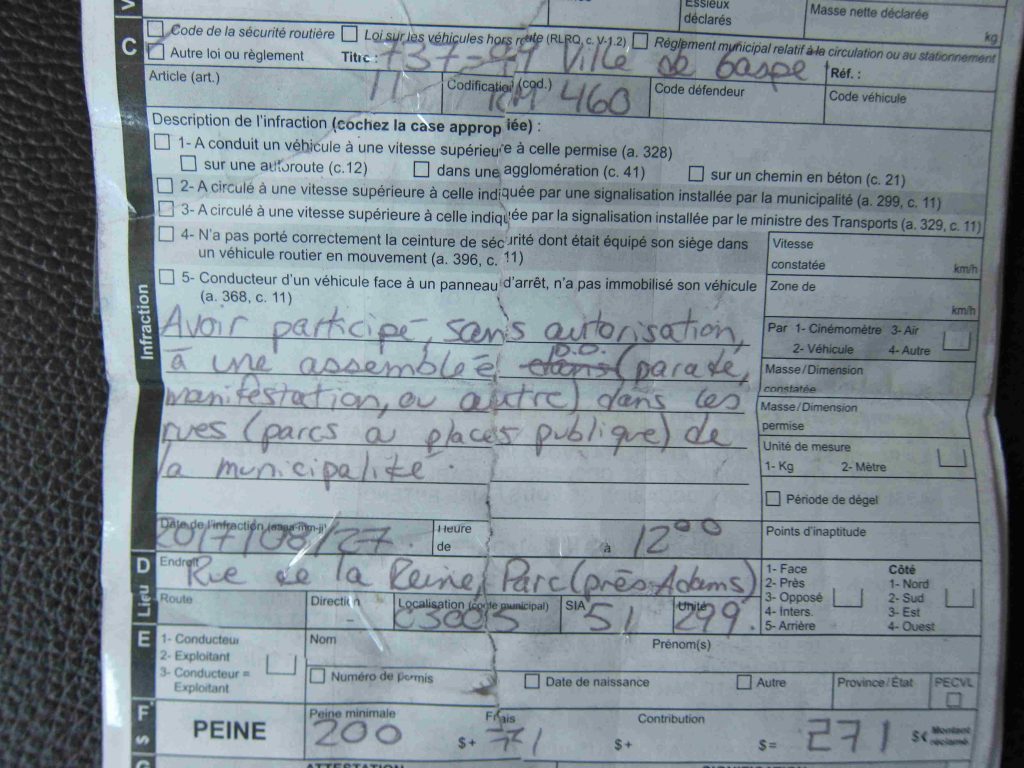 Essieux
déclarés
Masse nette déclarée
kg
C
Code de la sécurité routière Loi sur les véhicules hors route (RLRQ, c. V-1.2) Règlement municipal relatif à la circulation ou au stationnement
Autre loi ou règlement Titre : 737-97 Ville de Gaspé Réf. :
Article (art.) 11 Codification (cod.) RM 460 Code défendeur Code véhicule
Infraction
Description de l'infraction (cochez la case appropriée) :
1- A conduit un véhicule à une vitesse supérieure à celle permise (a. 328)
sur une autoroute (c.12) dans une agglomération (c. 41) sur un chemin en béton (c. 21)
2- A circulé à une vitesse supérieure à celle indiquée par une signalisation installée par la municipalité (a. 299, c. 11)
3- A circulé à une vitesse supérieure à celle indiquée par la signalisation installée par le ministre des Transports (a. 329, c. 11)
4- N'a pas porté correctement la ceinture de sécurité dont était équipé son siège dans
un véhicule routier en mouvement (a. 396, c. 11)
5- Conducteur d'un véhicule face à un panneau d'arrêt, n'a pas immobilisé son véhicule
(a. 368, c. 11)
Vitesse
constatée km/h
Zone de
km/h
Par 1- Cinémomètre 3- Air
2- Véhicule 4- Autre
Masse/Dimension
constatée
Masse/Dimension
permise
Unité de mesure
1- Kg 2- Mètre
Période de dégel
Points d'inaptitude
Avoir participé, sans autorisation,
à une assemblée dans D.D. (parade,
manifestation, ou autre) dans les
rues (parcs ou places publique) de
la municipalité.
Date de l'infraction (aaaa-mm-jj) 2017/08/27 Heure
de à 12 00
D
Lieu
Endroit Rue de la Reine, Parc (près Adams)
Route Direction - Localisation (code municipal) C3005 SIA 51 Unité 299.
1- Face
2- Près
3- Opposé
4- Inters.
5- Arrière
Côté
1- Nord
2- Sud
3- Est
4- Ouest
E
1- Conducteur
2- Exploitant
3- Conducteur =
Exploitant
Nom Prénom(s)
Numéro de permis Date de naissance Autre Province/État PECVL
F
$
PEINE
Peine minimale 200 $+ Frais 71 $+ Contribution $= 271 $ Montant
réclamé
G
ATTESTATION